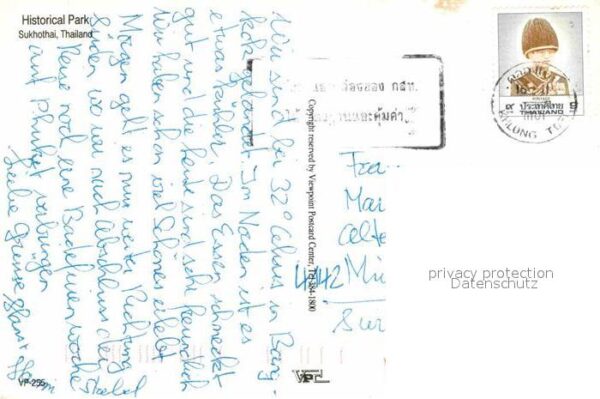 Historical Park
Sukhothai, Thailand
Wir sind bei 32° Celsius in Bang-
kok gelandet. Im Norden ist es
etwas kühler. Das Essen schmeckt
gut und die Leute sind sehr freundlich
Wir haben schon viel Schönes erlebt.
Morgen geht es nun weiter Richtung
Süden wo wir nach Abschluss der
Reise noch eine Badeferienwoche
auf Phuket verbringen
Liebe Grüsse
Copyright reserved by Viewpoint Postcard Center, Tel. 384-1800
VP-255
ประเทศไทย
THAILAND
4142 Mün
privacy protection
Datenschutz